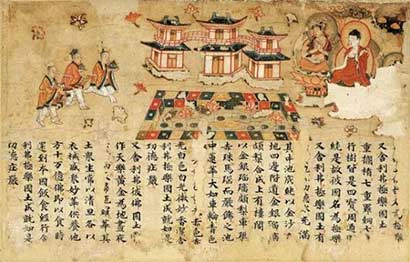 又舍利弗極樂國土
重欄楯七重羅網七
行樹皆是四寶周匝
繞是故彼國名為極樂
又舍利弗極樂國土有
充滿
其中池底純以金沙
地四邊階道金銀琉璃
頗梨合成上有樓閣
以金銀琉璃頗梨車
赤珠馬瑙而嚴飾之池
中蓮華大如車輪青色
赤色赤
光白色白光微妙香潔舍
利弗極樂國土成就如是
功德莊嚴
又舍利弗彼佛國土
作天樂黃金為地晝夜
華其
土眾生常以清旦各以
衣祴盛眾妙華供養他
方十萬億佛即以食時
還到本國飯食經行舍
利弗極樂國土成就如是
功德莊嚴